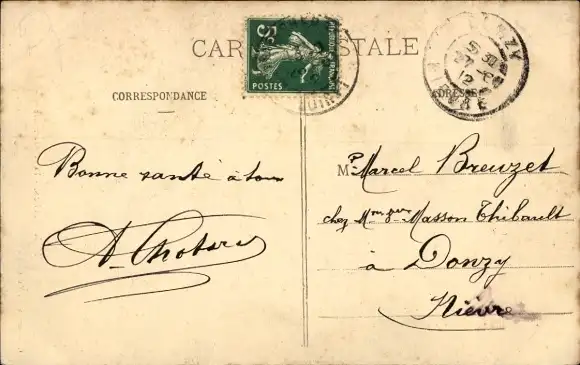 CARTE POSTALE
5
POSTES
DONZY
12
CORRESPONDANCE
ADRESSE
Bonne santé à tous
M. Marcel Breuzet
chez Mme Vve Masson Thibault
à Donzy
Nièvre